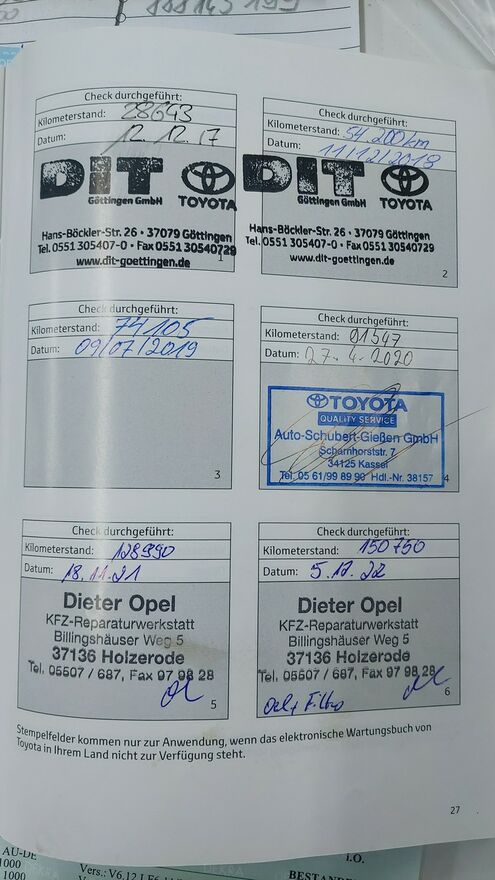 Check durchgeführt:
Kilometerstand: 28643
Datum: 12.12.17
DIT
Göttingen GmbH
TOYOTA
Hans-Böckler-Str. 26 • 37079 Göttingen
Tel. 0551 305407-0 • Fax 0551 30540729
www.dit-goettingen.de
1
Check durchgeführt:
Kilometerstand: 54.200km
Datum: 11/12/2018
DIT
Göttingen GmbH
TOYOTA
Hans-Böckler-Str. 26 • 37079 Göttingen
Tel. 0551 305407-0 • Fax 0551 30540729
www.dit-goettingen.de
2
Check durchgeführt:
Kilometerstand: 74105
Datum: 09/07/2019
3
Check durchgeführt:
Kilometerstand: 91547
Datum: 27.4.2020
TOYOTA
QUALITY SERVICE
Auto-Schubert-Gießen GmbH
Scharnhorststr. 7
34125 Kassel
Tel. 05 61/99 89 90 Hdl.-Nr. 38157
4
Check durchgeführt:
Kilometerstand: 128990
Datum: 18.11.21
Dieter Opel
KFZ-Reparaturwerkstatt
Billingshäuser Weg 5
37136 Holzerode
Tel. 05507 / 687, Fax 97 98 28
5
Check durchgeführt:
Kilometerstand: 150750
Datum: 5.12.22
Dieter Opel
KFZ-Reparaturwerkstatt
Billingshäuser Weg 5
37136 Holzerode
Tel. 05507 / 687, Fax 97 98 28
6
Stempelfelder kommen nur zur Anwendung, wenn das elektronische Wartungsbuch von
Toyota in Ihrem Land nicht zur Verfügung steht.
27
AU-DE
1000
1000
I.O.